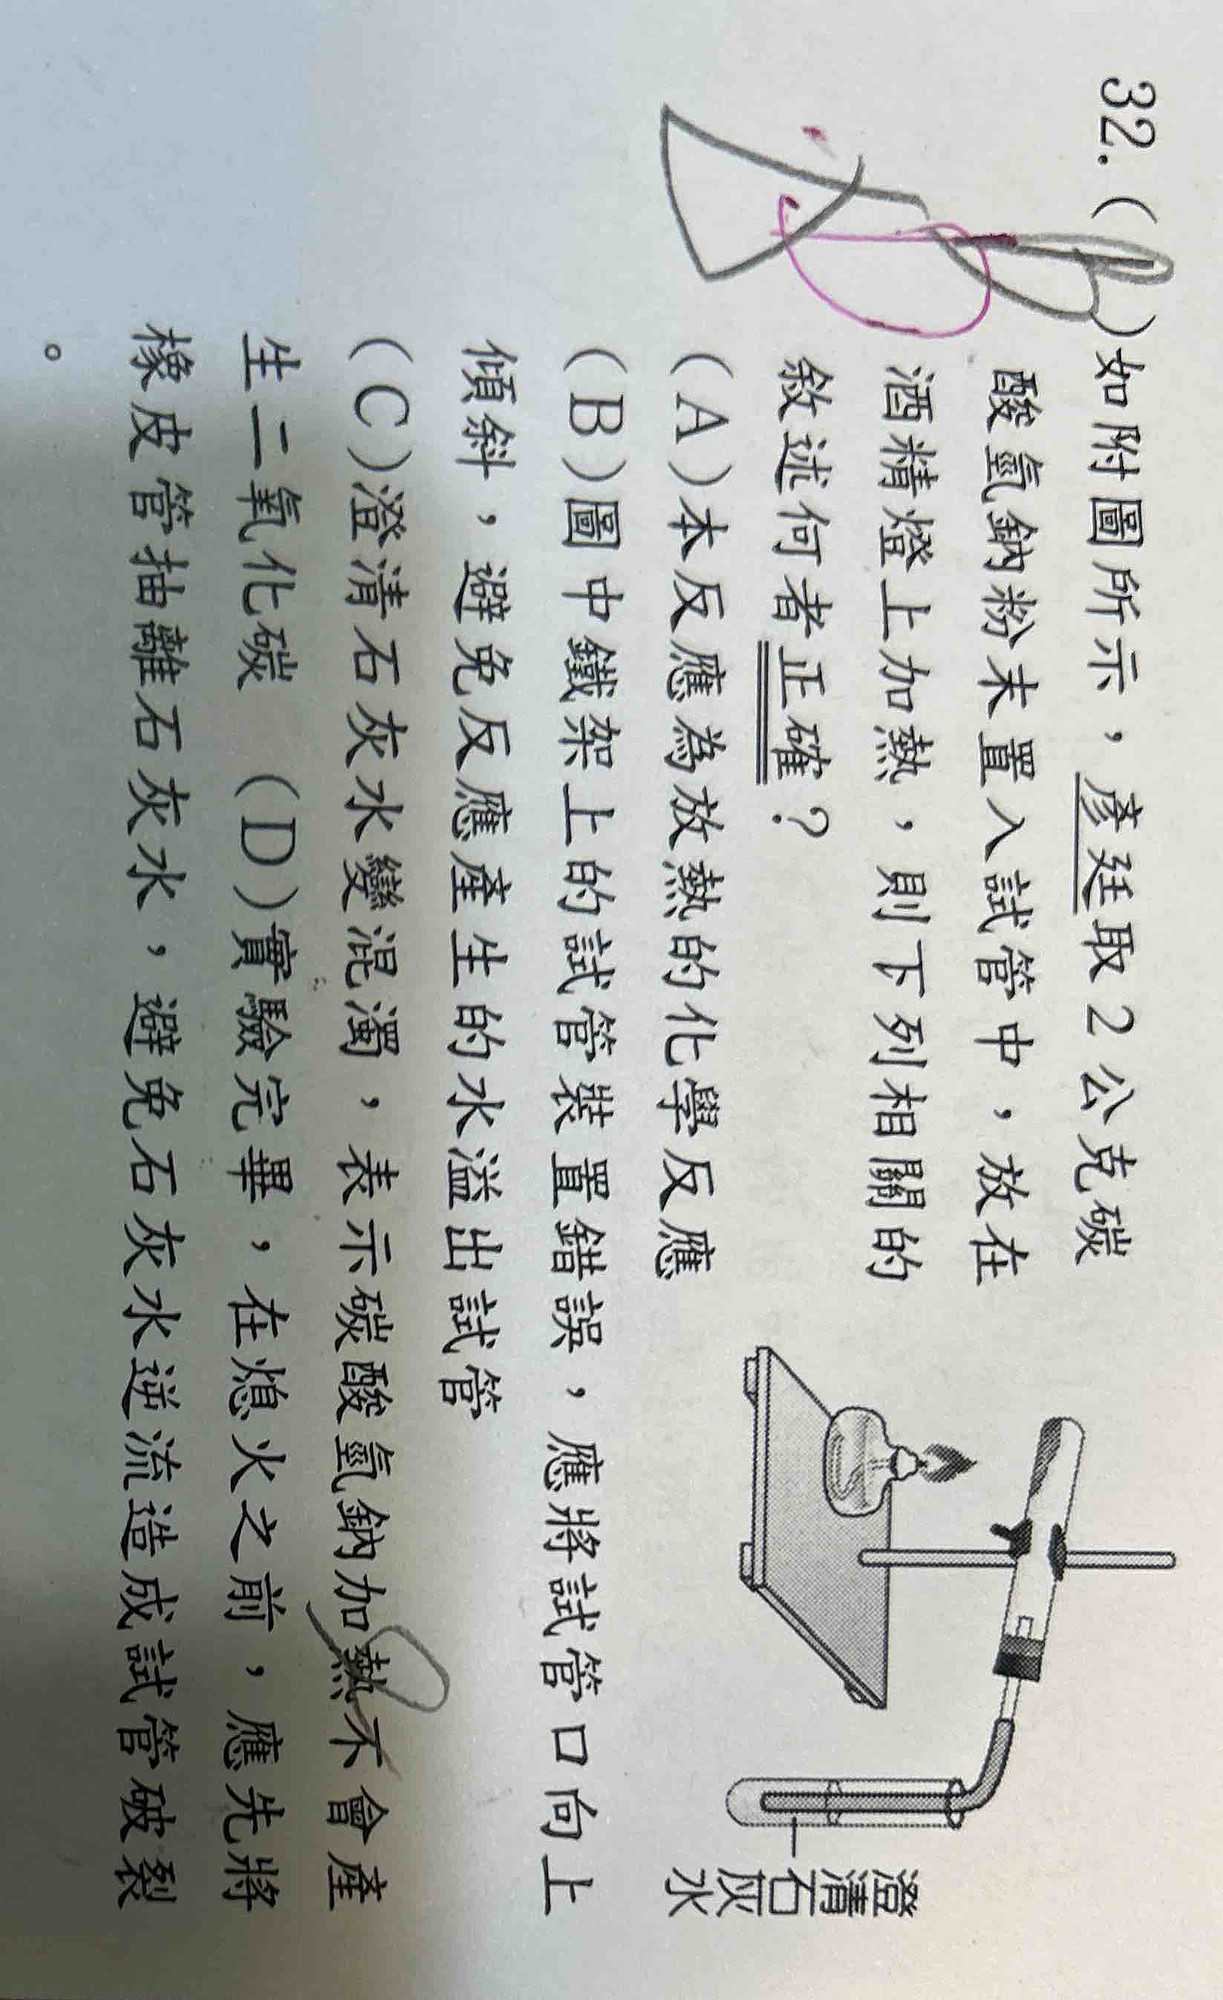 32.( B )如附圖所示，彥廷取2公克碳
酸氫鈉粉末置入試管中，放在
酒精燈上加熱，則下列相關的
敘述何者正確？
(A)本反應為放熱的化學反應
(B)圖中鐵架上的試管裝置錯誤，應將試管口向上
傾斜，避免反應產生的水溢出試管
(C)澄清石灰水變混濁，表示碳酸氫鈉加熱不會產
生二氧化碳 (D)實驗完畢，在熄火之前，應先將
橡皮管抽離石灰水，避免石灰水逆流造成試管破裂
。
澄清石灰水
D